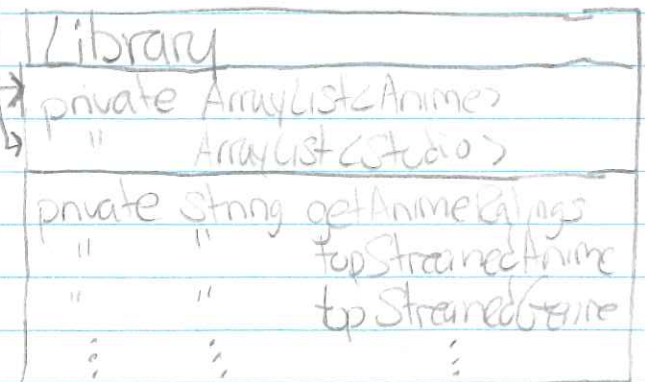 Library
private ArrayList<Anime>
" ArrayList<Studio>
private String getAnimeRatings
" " topStreamedAnime
" " topStreamedGenre
⋮ ⋮ ⋮